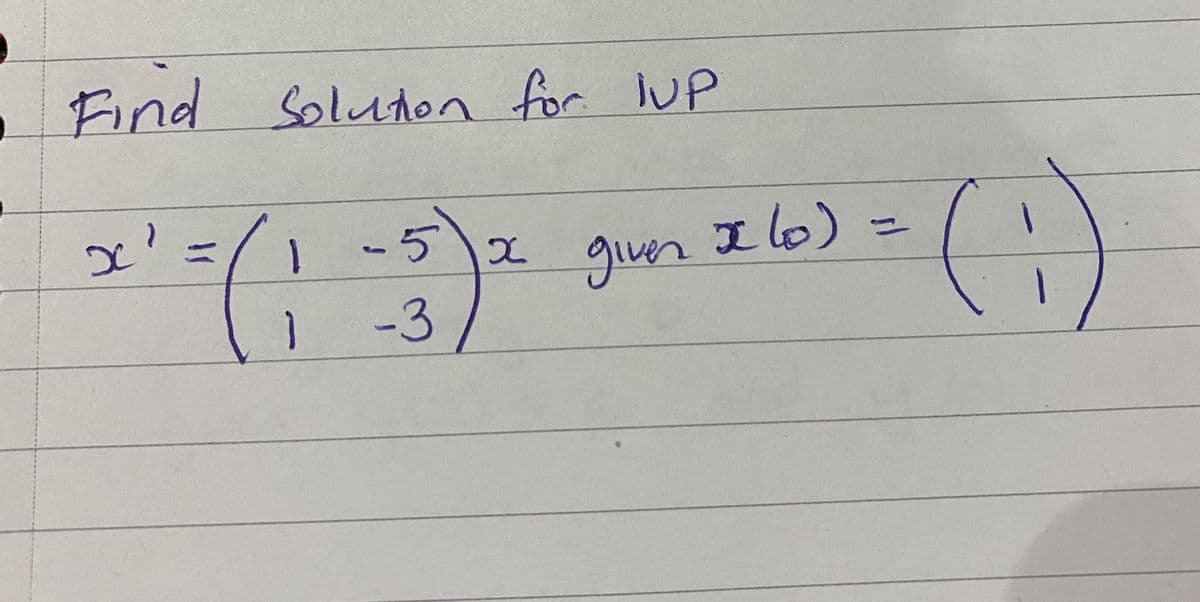 Find Solution for IVP
x' = ( 1 -5 ) x given x(0) = ( 1 )
( 1 -3 ) ( 1 )